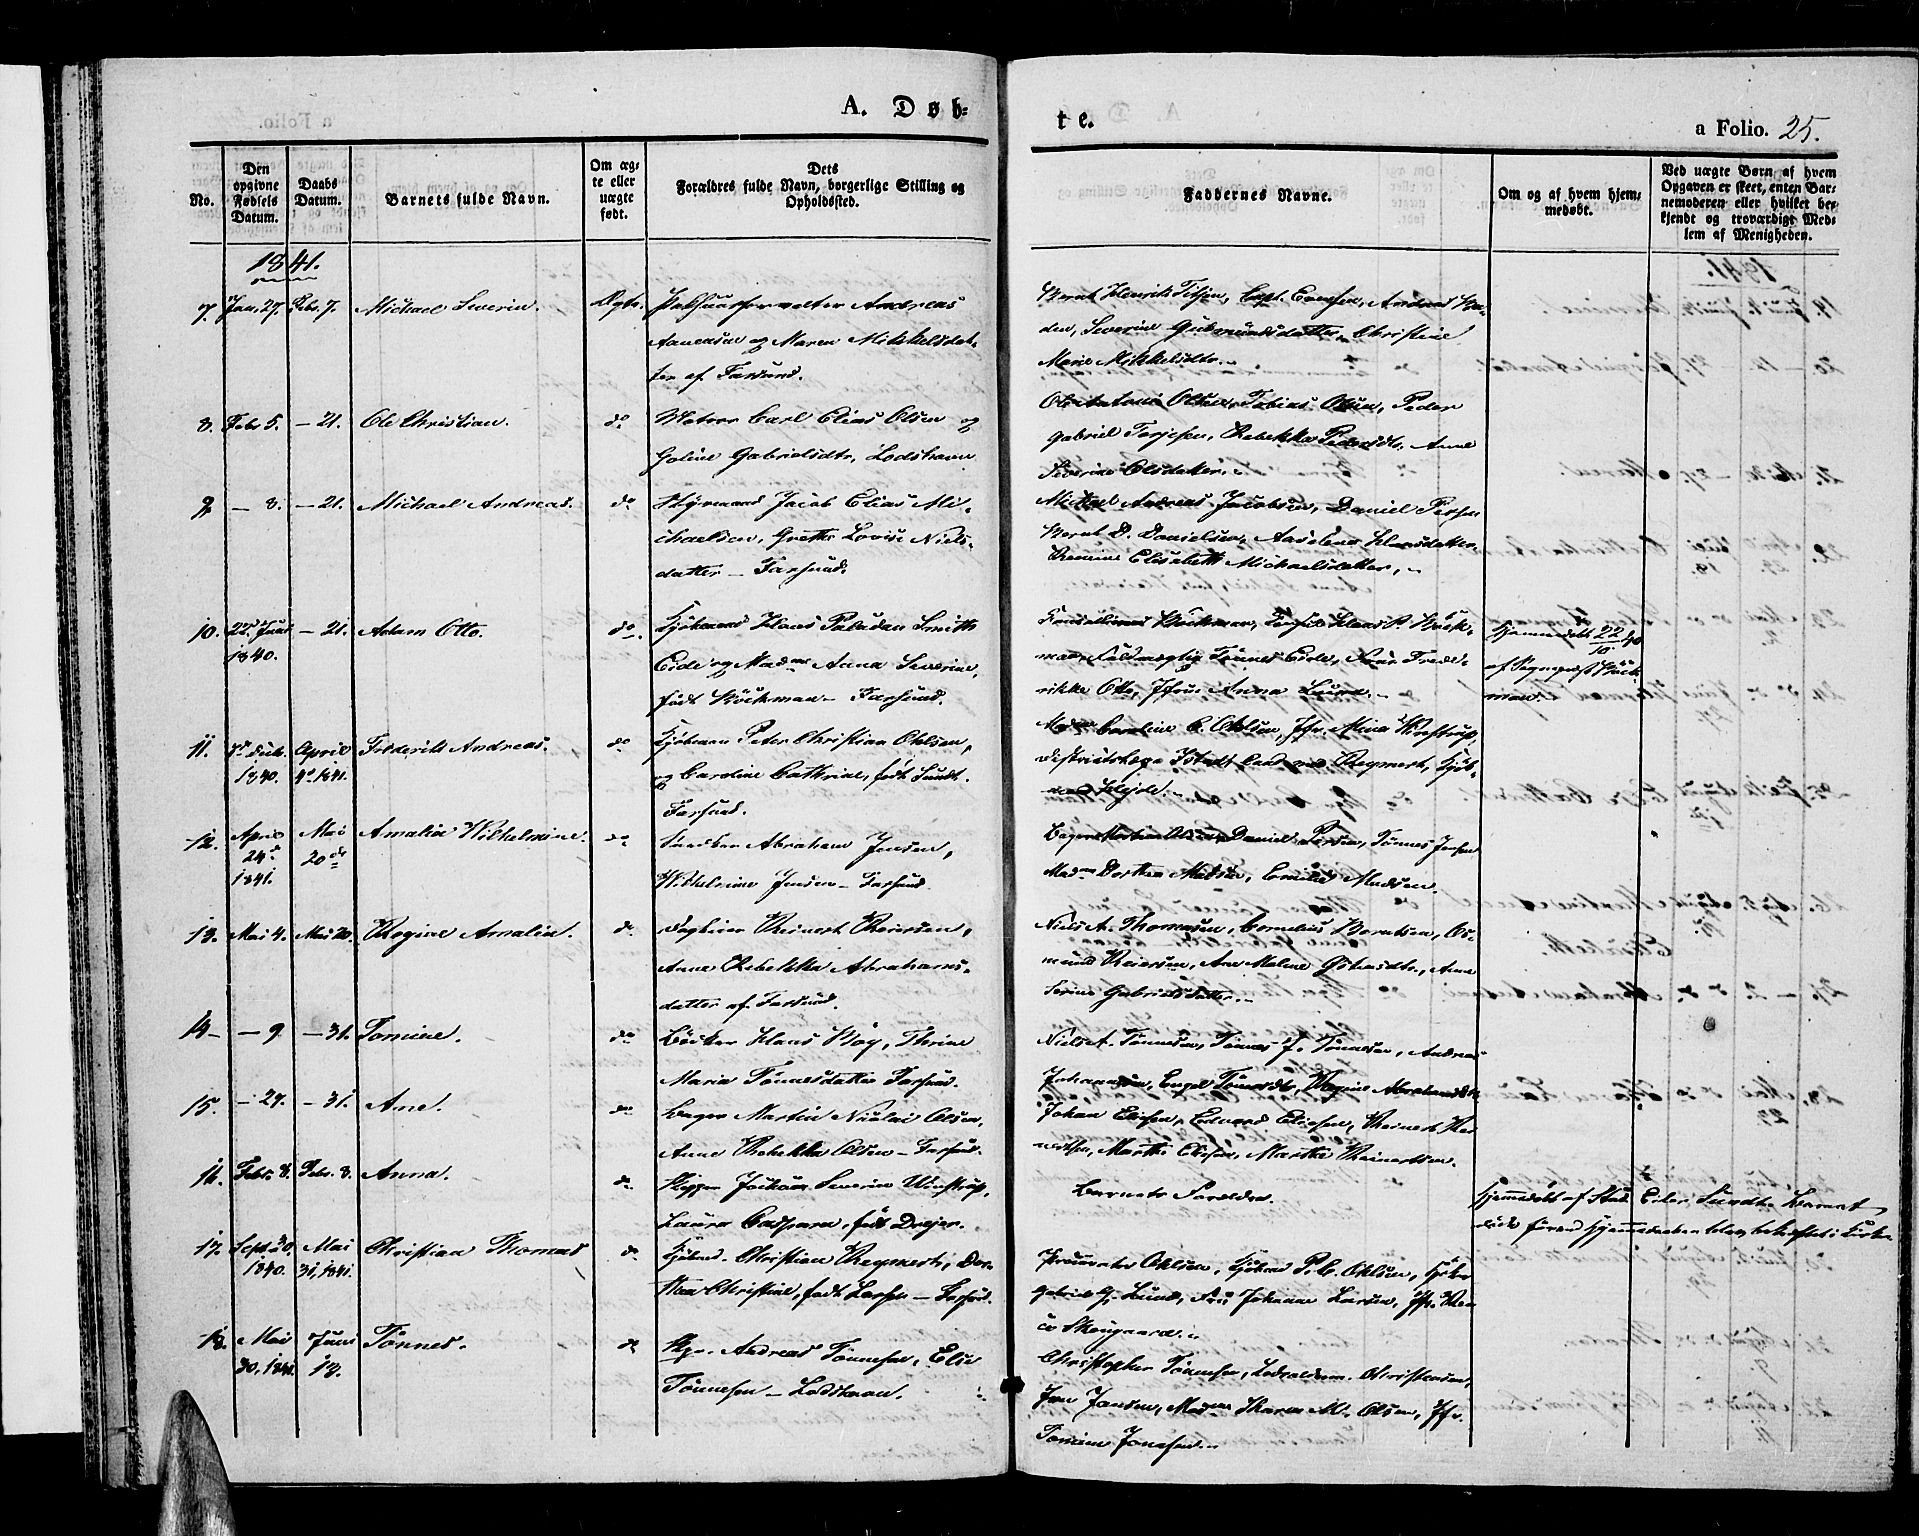 A. Døb-
te.
a Folio. 25.
No.
Den opgivne Fødsels Datum.
Daabs Datum.
Barnets fulde Navn.
Om ægte eller uægte født.
Dets Forældres fulde Navn, borgerlige Stilling og Opholdssted.
Faddernes Navne.
Om og af hvem hjemmedøbt.
Ved uægte Børn af hvem Opgaven er skeet, enten Barnemoderen eller hvilket bekjendt og troværdigt Medlem af Menigheden.
1841.
7. Jan. 27. Febr. 7. Michael Severin. Ægte. Pakhuusforvalter Andreas
Aanensen og Maren Mikkelsdat-
ter af Farsund.
Bernt Henrik Tetjen, Capt. Evensen, Andreas
Severine Gudmundsdatter, Christine
Marie Mikkelsdtr.
8. Febr 5. – 21. Ole Christian. do Matros Carl Elias Olsen og
Goline Gabrielsdtr, Lodshavn
Ole Antoni Olsen, Tobias Olsen, Peder
Gabriel Terjesen, Rebekka Pedersdtr, Anne
Severine Olsdatter.
9. – 8. – 21. Michael Andreas. do Styrmand Jacob Elias Mi-
chaelsen, Grethe Lovise Niels-
datter – Farsund.
Michael Andreas Jacobsen, Daniel Persen
Bernt D. Danielsen, Aaselene Hansdatter,
Elisabeth Michaelsdatter.
10. 22d Juni 1840. – 21. Adam Otto. do Kjøbmand Hans Paludan Smith
Eide og Madme Anna Severine,
født Böckman – Farsund.
Böckman, Hans P. Böck-
man, Fuldmægtig Tönnes Eide, Frue Frede-
rikke Otto, Jfru Anna Lund.
Hjemmedøbt 22/10 40
af Sognepræst Böck-
man.
11. Decb. 1840. April 4d 1841. Frederik Andreas. do Kjøbmann Peter Christian Ohlsen,
og Caroline Cathrine, født Sundt.
Farsund.
Madme Caroline C. Ohlsen, Jfr. Mina Winstrup,
Districtslæge Regmert, Kjöb-
mand
12. April 24d 1841. Mai 20de Amalia Wilhelmine. do Snedker Abraham Jensen,
Wilhelmine Jensen – Farsund.
Bager Martin Olsen, Daniel Persen, Tönnes Jensen
Madme Dorthea Madsen, Emilie Madsen.
13. Mai 4. Mai 20. Regine Amalia. do Dagleier Reinert Reiersen,
Anne Rebekka Abrahams-
datter af Farsund.
Niels A. Thomasen, Cornelius Berntsen, Os-
mund Reiersen, Ane Malene Anne
Serine Gabrielsdatter.
14 – 9. – 31. Tomine. do Bödker Hans Bög, Therine
Maria Tönnesdatter Farsund.
Niels A. Tönnesen, Tönnes J. Tönnesen, Andreas
Johannesen, Engel Tönnesdtr, Regine Abrahamsdtr.
15. – 27. – 31. Ane. do Bager Martin Nicolai Olsen,
Anne Rebekka Olsen – Farsund.
Johan Eliesen, Edvard Eliesen, Reinert Rei-
nertsen, Marthe Eliesen, Marthe Reinertsen.
16. Febr. 8. Febr. 8. Anna. do Skipper Jochum Severin Winstrup,
Laura Caspara, født Drejer.
Barnets Forældre.
Hjemmedøbt af Stud. Eiler Sundt. Barnet
døde förend Hjemmedaaben blev bekræftet i Kirken
17. Septb 30. 1840. Mai 31, 1841. Christian Thomas do Kjöbmd. Christian Regmert, Dor-
thea Christine, født Larsen – Farsund.
Ohlsen, Kjöbmd P. C. Ohlsen,
Gabriel G. Lund, Fru Johanne Larsen, Jfr.
Skougaard.
18. Mai 30, 1841. Juni 13. Tönnes. do Andreas Tönnesen, Elise
Tönnesen – Lodshavn.
Christopher Tönnesen, Christensen,
Jens Jansen, Madme Maren M. Olsen, Jfr.
Tomine Jonassen.